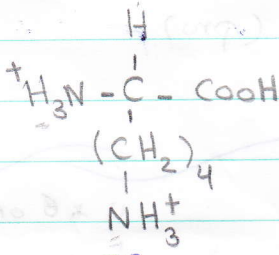 H
+H3N - C - COOH
(CH2)4
NH3+